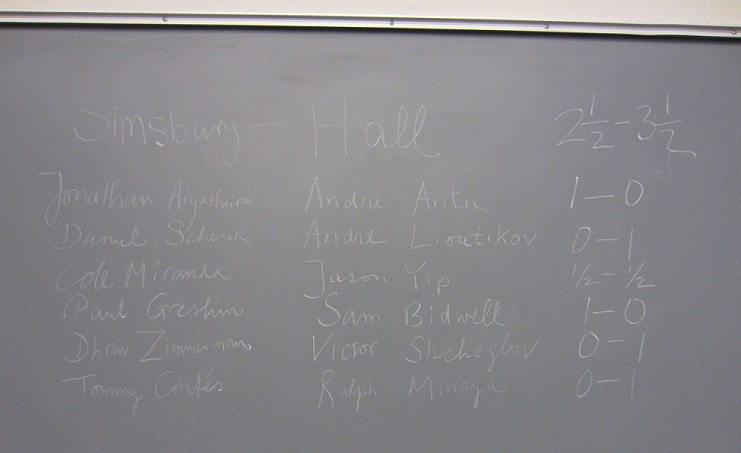 Simsbury - Hall 2 1/2 - 3 1/2
Jonathan Andre Antic 1-0
Daniel Schenk Andre Lioutikov 0-1
Cole Miranda Jason Yip 1/2 - 1/2
Paul Sam Bidwell 1-0
Zimmermann Victor Shcheglov 0-1
Tommy Cortés Ralph Minaya 0-1